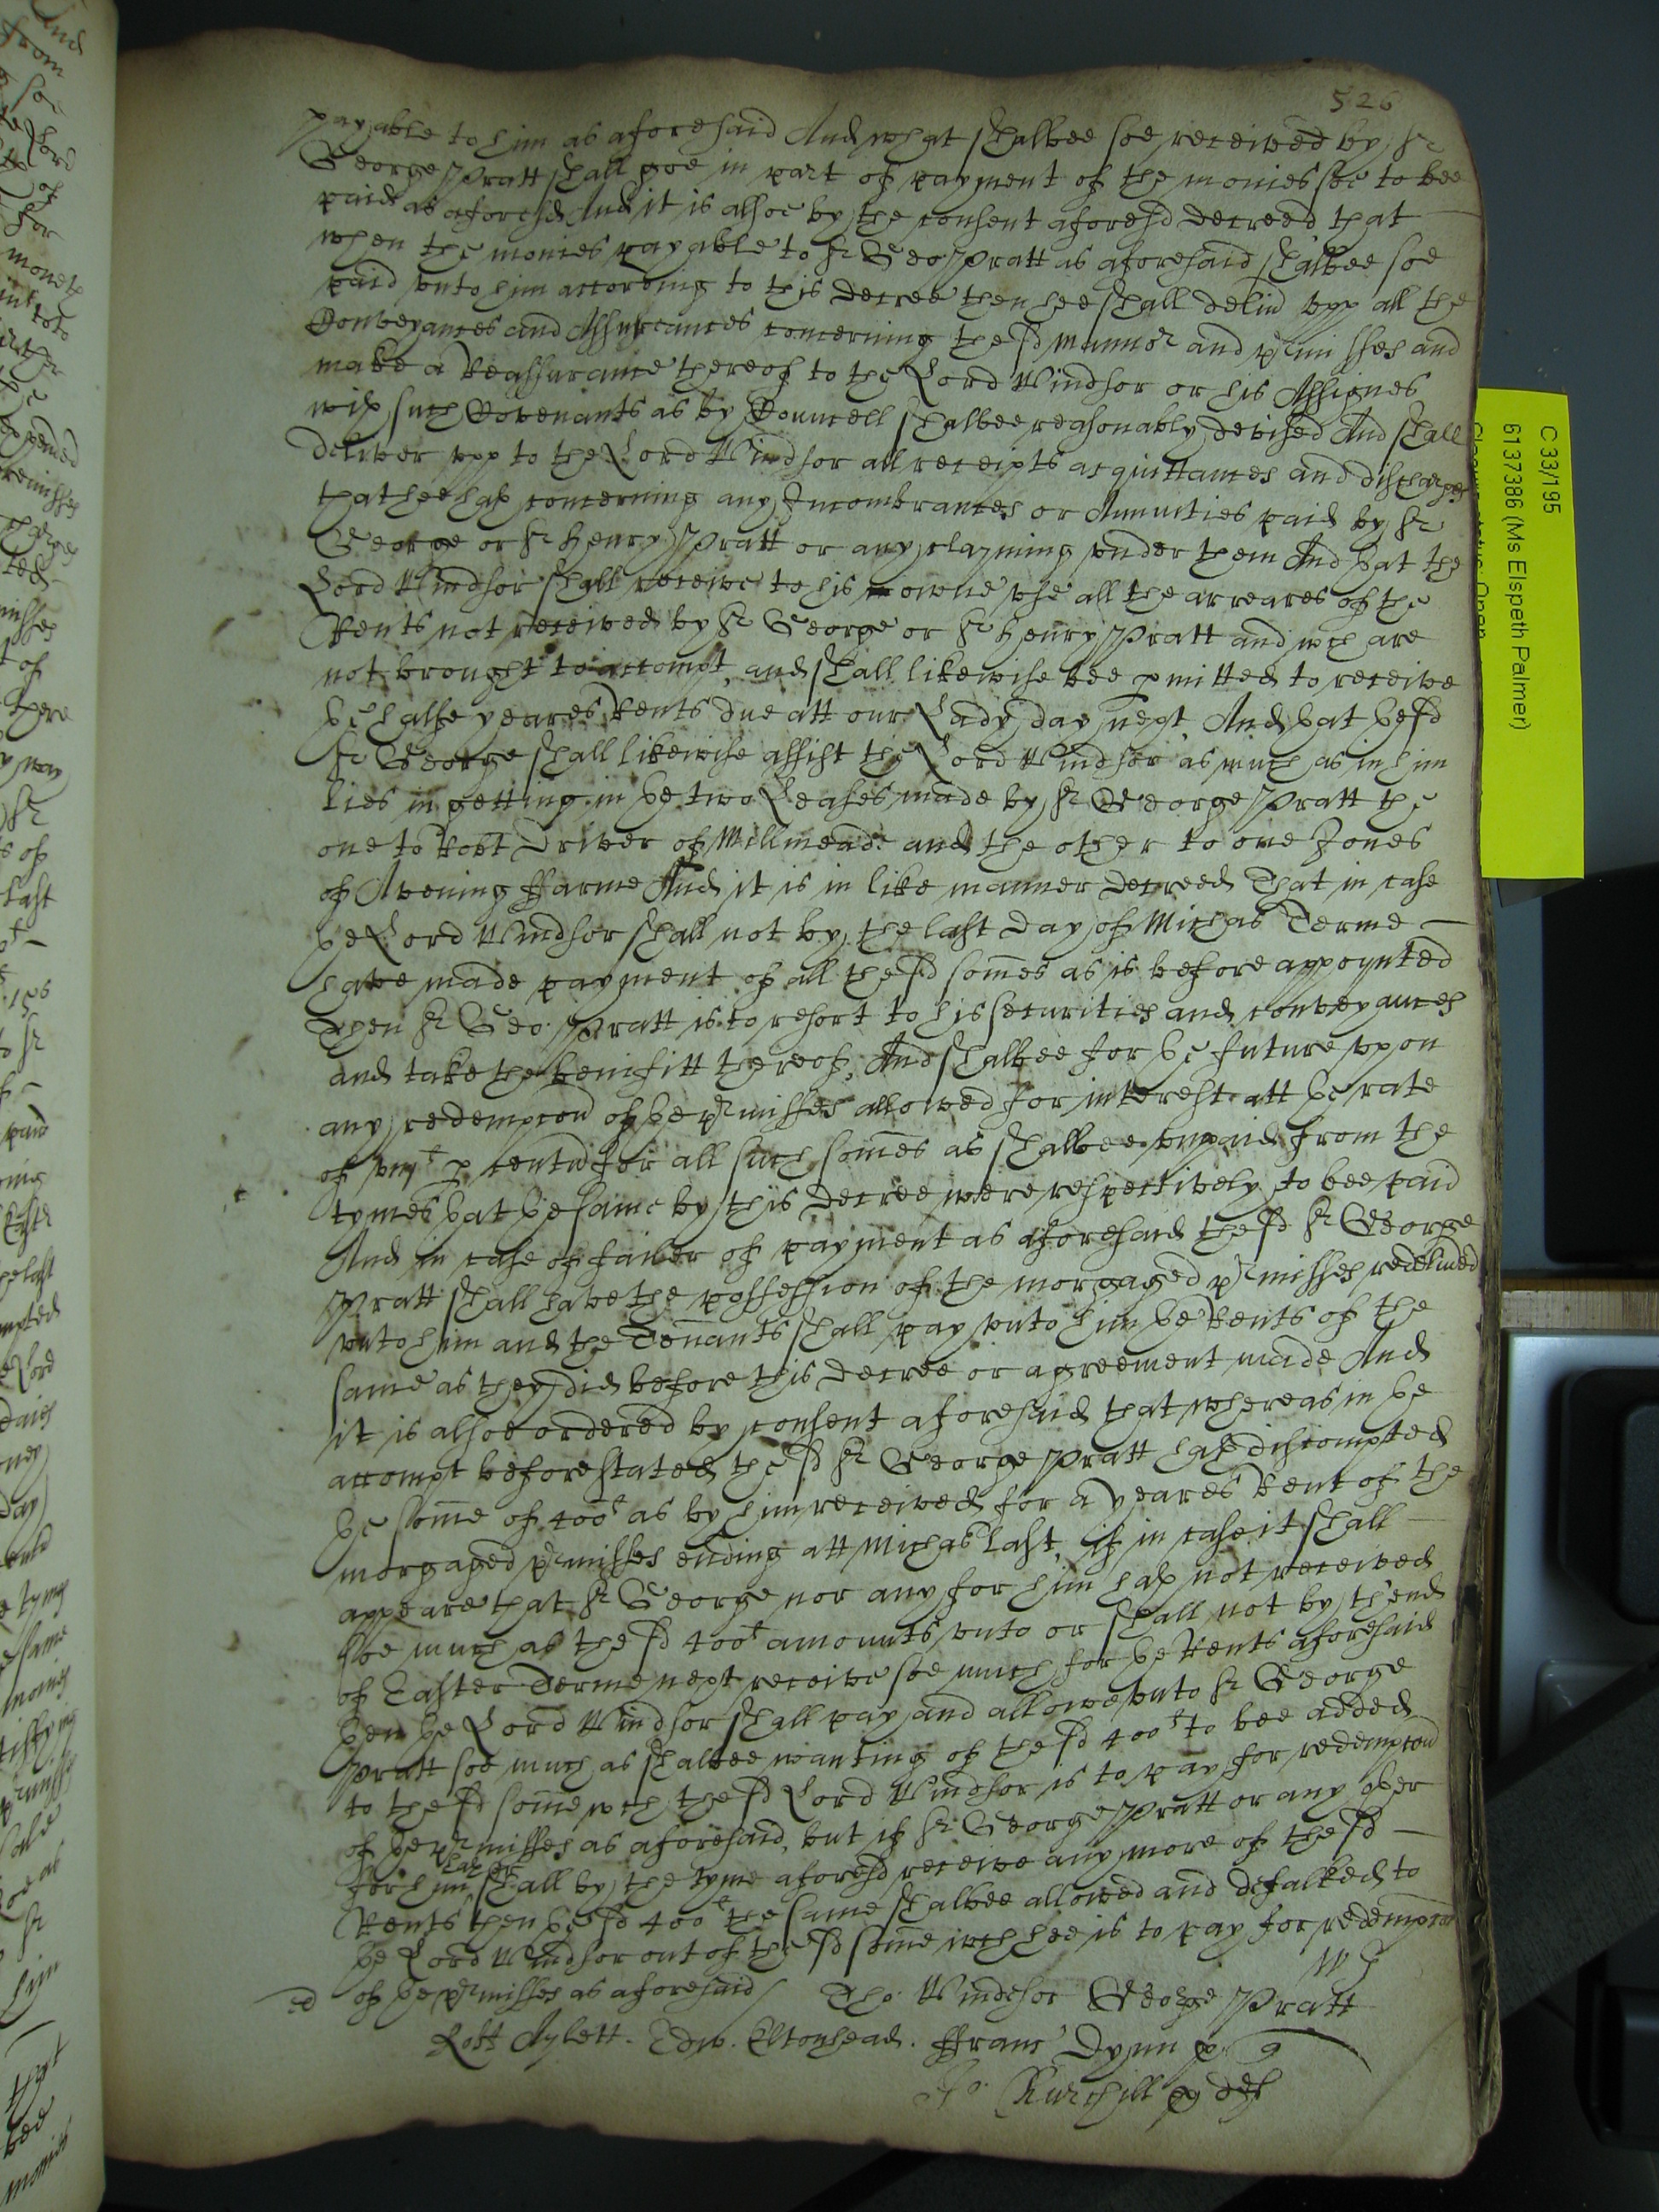 526
payable to him as aforesaid And what shalbee soe received by Sr
George Pratt shall goe in part of payment of the monies soe to bee
paid as aforesd And it is alsoe by the consent aforesd decreed that
when the monies payable to Sr Geo: Pratt as aforesaid shalbee soe
paid vnto him according to this decree then hee shall deliu vpp all the
Conveyances and Assurances concerning the sd mannor and prmisses and
make a Reassurance thereof to the Lord Windsor or his Assignes
with such Covenants as by Councell shalbee reasonably devised And shall
deliver vpp to the Lord Windsor all receipts acquittances and discharges
that hee hath concerning any Incombrances or Annuities paid by Sr
George or Sr Henry Pratt or any clayming vnder them And yat the
Lord Windsor shall receive to his owne vse all the arreares of the
Rents not received by Sr George or Sr Henry Pratt and wch are
not brought to accompt, and shall likewise bee pmitted to receive
ye halfe yeares Rents due att our Lady day next, And yat ye sd
Sr George shall likewise assist the Lord Windsor as much as in him
lies in getting in ye two Leases made by Sr George Pratt the
one to Robt Driver of Millmeade and the other to one Jones
of Avening ffarme And it is in like manner decreed That in case
ye Lord Windsor shall not by the last day of Michas Terme
have made payment of all the sd somes as is before appoynted
Then Sr Geo: Pratt is to resort to his securities and conveyances
and take the benifitt thereof, And shalbee for ye future vpon
any redempcon of ye prmisses allowed for interest att ye rate
of viijt p centu for all such somes as shalbee vnpaid from the
tymes yat ye same by this decree were respectively to bee paid
And in case of failer of payment as aforesaid the sd Sr George
Pratt shall have the possession of the morgaged prmisses redeliued
vnto him and the Tenants shall pay vnto him ye Rents of the
same as they did before this decree or agreement made And
it is alsoe ordered by consent aforesaid that whereas in ye
accompt before stated the sd Sr George Pratt hath discompted
ye some of 400t as by him received for a yeares Rent of the
morgaged prmisses ending att Michas last, if in case it shall
appeare that Sr George nor any for him hath not received
soe much as the sd 400t amounts vnto or shall not by th'end
of Easter Terme next receive soe much for ye Rents aforesaid
yen ye Lord Windsor shall pay and allowe vnto Sr George
Pratt soe much as shalbee wanting of the sd 400t to bee added
to the sd some wch the sd Lord Windsor is to pay for redempcon
of ye prmisses as aforesaid, but if Sr George Pratt or any other
for him hath or shall by the tyme aforesd receive any more of the sd
Rents then ye sd 400t the same shalbee allowed and defalked to
ye Lord Windsor out of the sd some wch hee is to pay for redempcon
of ye prmisses as aforesaid / Tho: Windesor George Pratt
Robt Aylett. Edw. Eltonhead. ffranc Dynn p
Jo: Churchill p def
C 33/195
6137386 (Ms Elspeth Palmer)